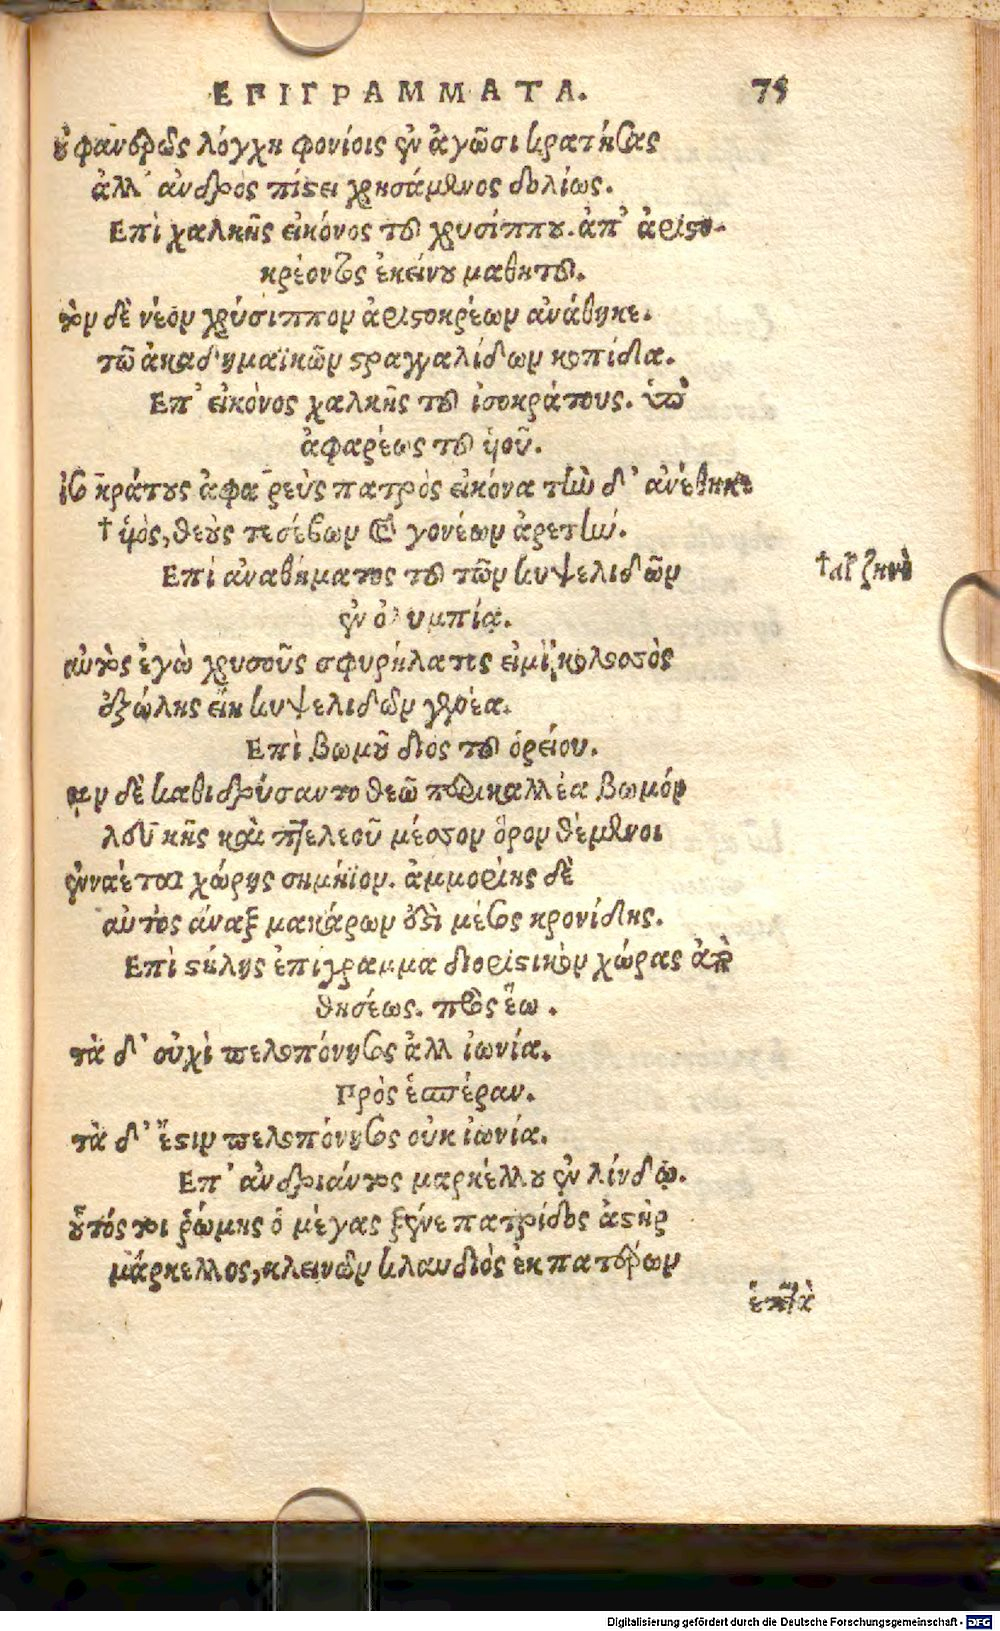 ΕΠΙΓΡΑΜΜΑΤΑ. 75
οὐ φανερῶς λόγχῃ φονίοις ἐν ἀγῶσι κρατήσας
ἀλλ' ἀνδρὸς πίστει χρησάμενος δολίως.
Επὶ χαλκῆς εἰκόνος τοῦ χρυσίππου. ἀπ' ἀριστο-
κρέοντος ἐκείνου μαθητοῦ.
τὸν δὲ νέον χρύσιππον ἀριστοκρέων ἀνάθηκε.
τῶ ἀκαδημαϊκῶν στραγγαλίδων κοπίδα.
Επ' εἰκόνος χαλκῆς τοῦ ἰσοκράτους. ὑπὸ
ἀφαρέως τοῦ ὑοῦ.
ἰσοκράτους ἀφαρεὺς πατρὸς εἰκόνα τὴν δ' ἀνέθηκε
† ὑὸς, θεοὺς τε σέβων καὶ γονέων ἀρετήν.
Επὶ ἀναθήματος τοῦ τῶν κυψελιδῶν †αἲ ζηνὸ
ἐν ὀλυμπίᾳ.
αὐτὸς ἐγὼ χρυσοῦς σφυρήλατος εἰμὶ κολοσσὸς
ἐξώλης εἴη κυψελιδῶν γενέα.
Επὶ βωμοῦ διὸς τοῦ ὁρείου.
τὸν δὲ καθιδρύσαντο θεῶ περικαλλέα βωμόν
λευκῆς καὶ πτελεοῦ μέσσον ὅρον θέμενοι
ἐνναέται χώρης σημήϊον. ἀμμορίης δὲ
αὐτὸς ἄναξ μακάρων ἐστὶ μέσος κρονίδης.
Επὶ στήλης ἐπίγραμμα διοριστικὸν χώρας ἀπὸ
θησέως. πρὸς ἕω.
τὰ δ' οὐχὶ πελοπόνησος ἀλλ ἰωνία.
Πρὸς ἑσπέραν.
τὰ δ' ἔστιν πελοπόνησος οὐκ ἰωνία.
Επ' ἀνδριάντος μαρκέλλου ἐν λίνδῳ.
οὗτός τοι ῥώμης ὁ μέγας ξεῖνε πατρίδος ἀστὴρ
μάρκελλος, κλεινῶν κλαυδιὸς ἐκ πατέρων
ἑπτὰ
Digitalisierung gefördert durch die Deutsche Forschungsgemeinschaft - DFG